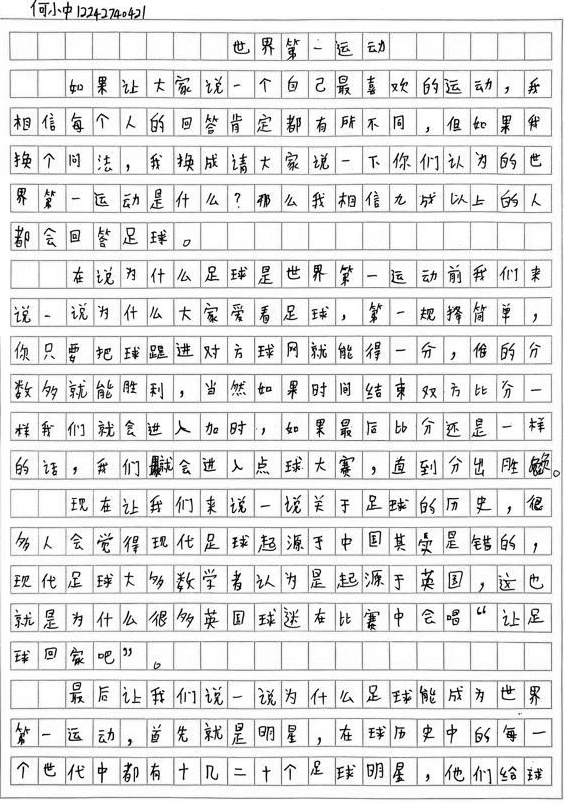 何小中12242740421
世界第一运动
如果让大家说一个自己最喜欢的运动，我
相信每个人的回答肯定都有所不同，但如果我
换个问法，我换成请大家说一下你们认为的世
界第一运动是什么？那么我相信九成以上的人
都会回答足球。
在说为什么足球是世界第一运动前我们来
说一说为什么大家爱看足球，第一规择简单，
你只要把球踢进对方球网就能得一分，得的分
数多就能胜利，当然如果时间结束双方比分一
样我们就会进入加时，如果最后比分还是一样
的话，我们就会进入点球大赛，直到分出胜负。
现在让我们来说一说关于足球的历史，很
多人会觉得现代足球起源于中国其实是错的，
现代足球大多数学者认为是起源于英国，这也
就是为什么很多英国球迷在比赛中会唱“让足
球回家吧”。
最后让我们说一说为什么足球能成为世界
第一运动，首先就是明星，在球历史中的每一
个世代中都有十几二十个足球明星，他们给球